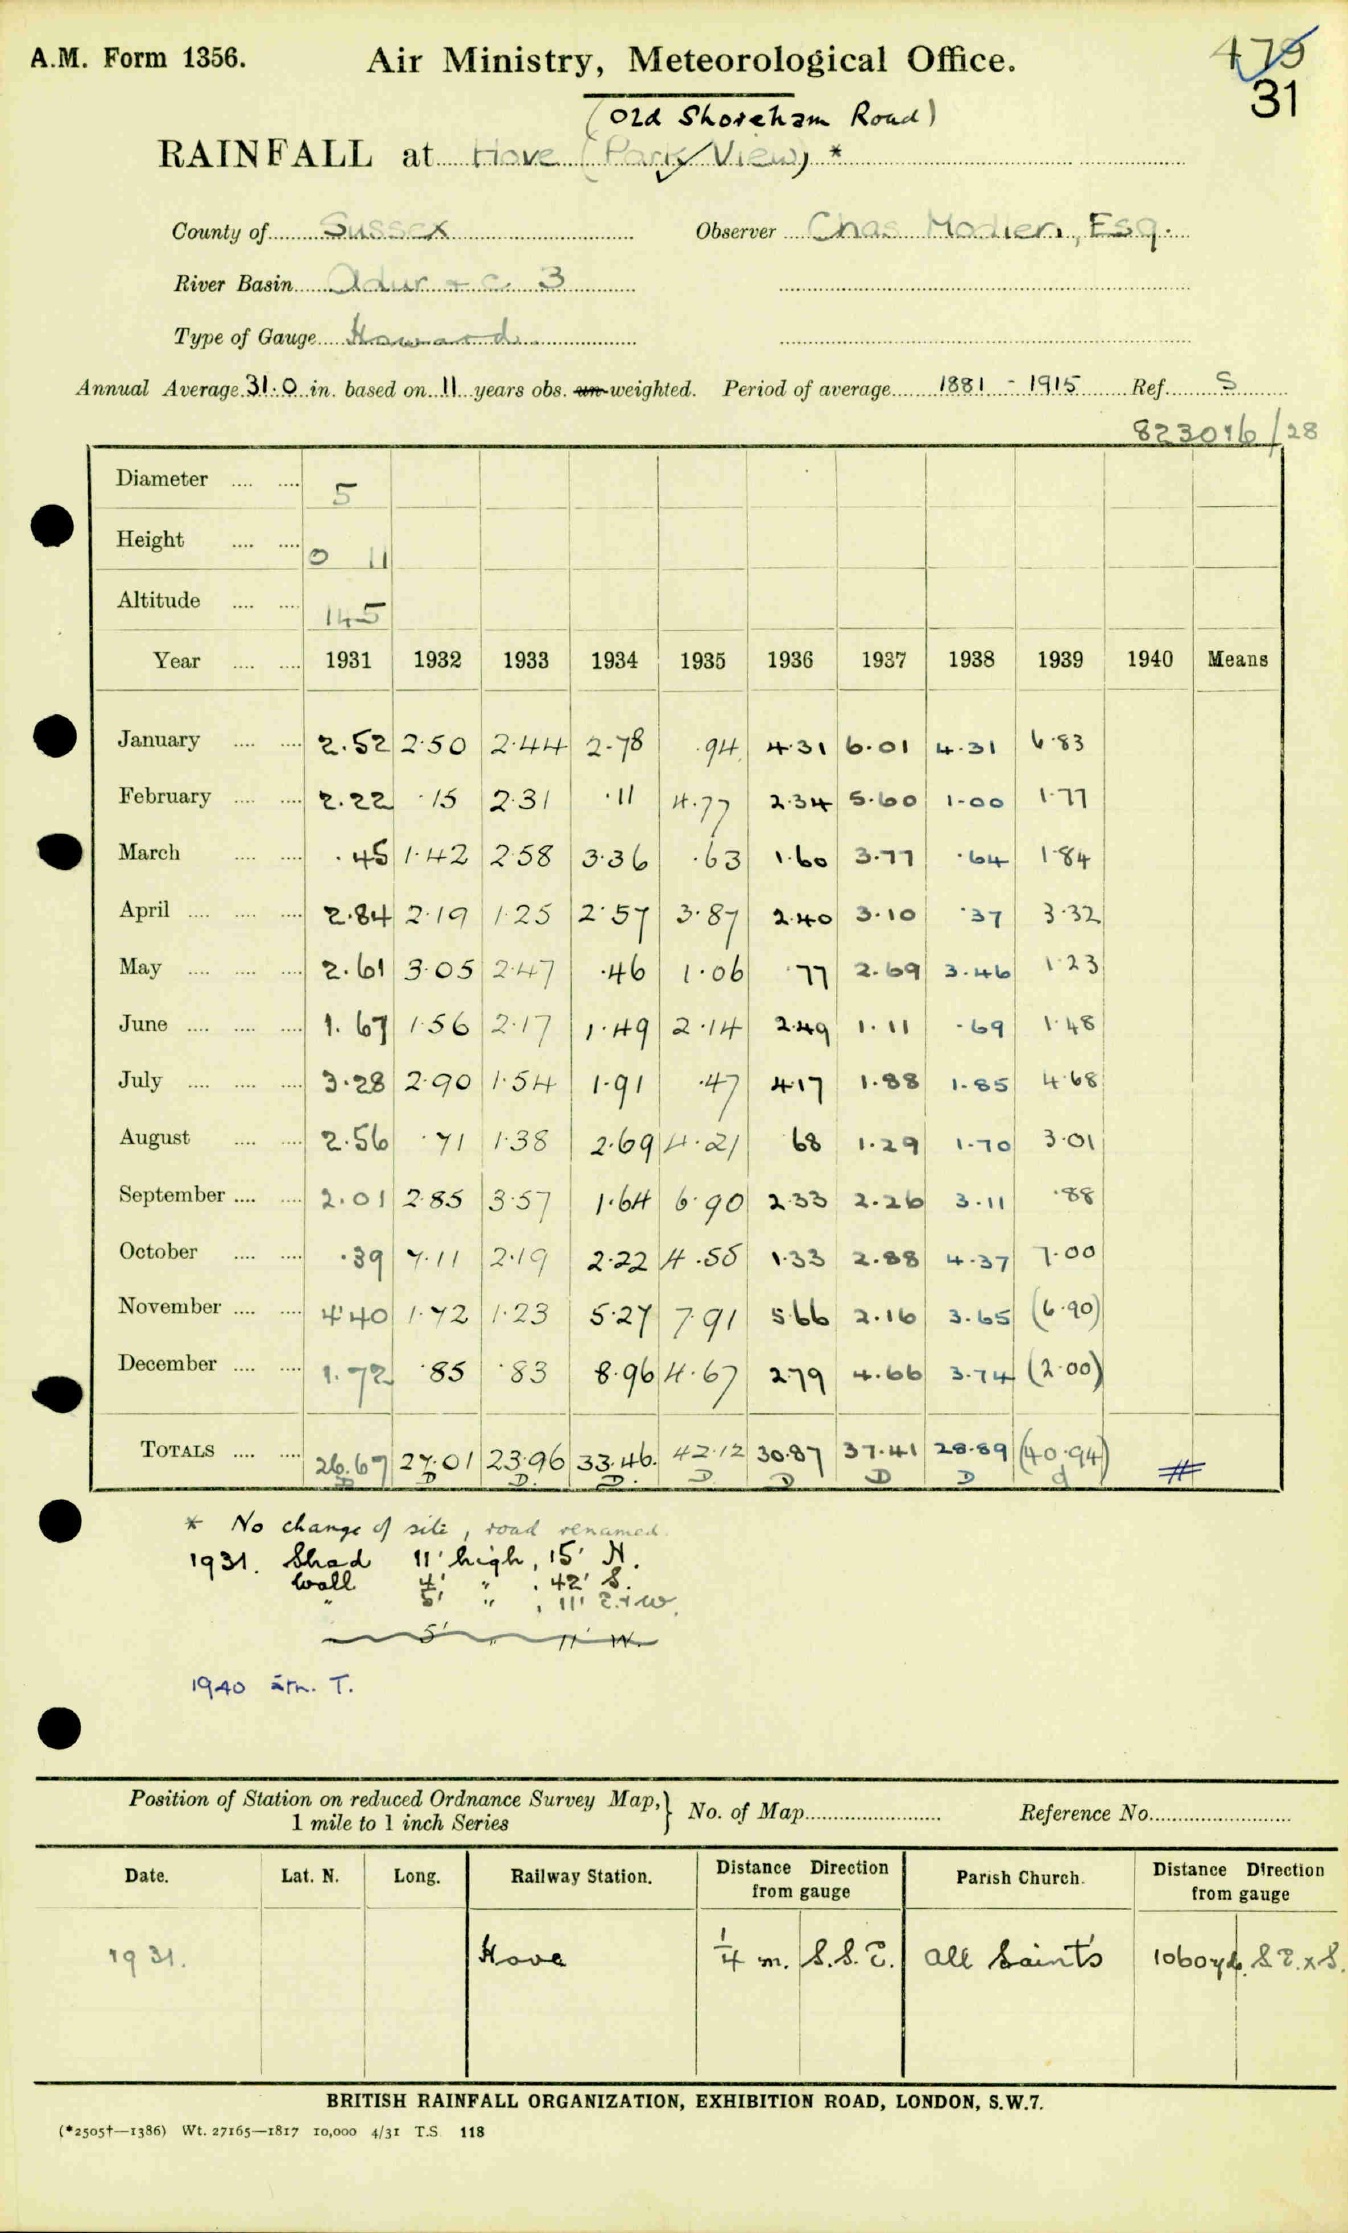 A.M. Form 1356. Air Ministry, Meteorological Office. 479
31
(Old Shoreham Road)
RAINFALL at Hove (Park View) *
County of Sussex Observer Chas Esq.
River Basin Adur & c. 3
Type of Gauge Howard
Annual Average 31.0 in. based on 11 years obs. un-weighted. Period of average 1881 - 1915 Ref. S
/28
Diameter .... .... 5
Height .... .... 0 11
Altitude .... .... 145
Year .... .... 1931 1932 1933 1934 1935 1936 1937 1938 1939 1940 Means
January .... .... 2.52 2.50 2.44 2.78 .94 4.31 6.01 4.31 6.83
February .... .... 2.22 .15 2.31 .11 4.77 2.34 5.60 1.00 1.77
March .... .... .45 1.42 2.58 3.36 .63 1.60 3.77 .64 1.84
April .... .... .... 2.84 2.19 1.25 2.57 3.87 2.40 3.10 .37 3.32
May .... .... .... 2.61 3.05 2.47 .46 1.06 .77 2.69 3.46 1.23
June .... .... .... 1.67 1.56 2.17 1.49 2.14 2.49 1.11 .69 1.48
July .... .... .... 3.28 2.90 1.54 1.91 .47 4.17 1.88 1.85 4.68
August .... .... 2.56 .71 1.38 2.69 4.21 68 1.29 1.70 3.01
September .... .... 2.01 2.85 3.57 1.64 6.90 2.33 2.26 3.11 .88
October .... .... .39 7.11 2.19 2.22 4.55 1.33 2.88 4.37 7.00
November .... .... 4.40 1.72 1.23 5.27 7.91 5.66 2.16 3.65 (6.90)
December .... .... 1.72 .85 .83 8.96 4.67 2.79 4.66 3.74 (2.00)
TOTALS .... .... 26.67 27.01 23.96 33.46. 42.12 30.87 37.41 28.89 (40.94) #
D D D. D. D D D D d
* No change of site, road renamed.
1931. Shed 11' high, 15' N.
Wall 4' " , 42' S.
" 5' " , 11' E. & W.
5' " 11' W.
1940 T.
Position of Station on reduced Ordnance Survey Map, 1 mile to 1 inch Series } No. of Map Reference No.
Date. Lat. N. Long. Railway Station. Distance Direction from gauge Parish Church. Distance Direction from gauge
1931. Hove 1/4 m. S.S.E. All Saints 1060 yds. S E. x S.
BRITISH RAINFALL ORGANIZATION, EXHIBITION ROAD, LONDON, S.W.7.
(*2505†—1386) Wt. 27165—1817 10,000 4/31 T.S. 118